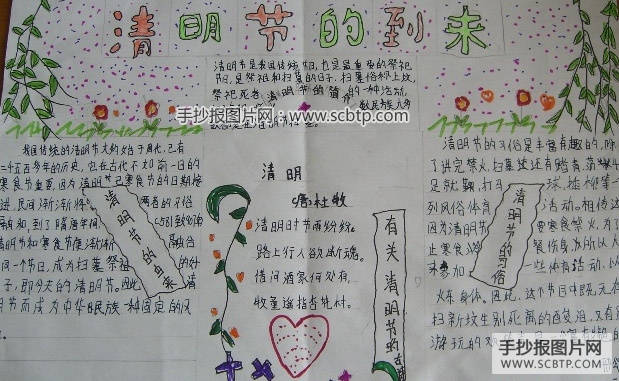 清明节的到来
清明节是我国传统节日,也是最重要的祭祀
节日,是祭祖和扫墓的日子。扫墓俗称上坟,
祭祀死者
的一种活动。
清明节的
手抄报图片网:www.scbtp.com
我国传统的清明节大约始于周代,已有
二千五百多年的历史,它在古代不如前一日的
寒食节重要,因为清明节已寒食节的日期接
进,民间渐渐将
两者的习俗
和,到了隋唐年间
清明节和寒食节便渐渐
融合
同一个节日,成为扫墓祭祖
的日
子,即今天的清明节。因此
清明
节而成为中华民族一种固定的风
清明节的由来
清明
唐·杜牧
清明时节雨纷纷,
路上行人欲断魂。
借问酒家何处有,
牧童遥指杏花村。
有关清明节的古诗
清明节的习俗是丰富有趣的,除
了讲究禁火、扫墓,还有踏青、荡秋千
足就鞠、打马
球、插柳等一
列风俗体育
活动。相传这
因为清明节
要寒食禁火,为了
止寒食冷
餐伤身,所以人
来参加
一些体育活动,以
炼身体。因此,这个节日中既有
扫新坟生别死离的酸泪,又有
游玩的欢
清明节的习俗
手抄报图片网
WWW.SCBTP.COM